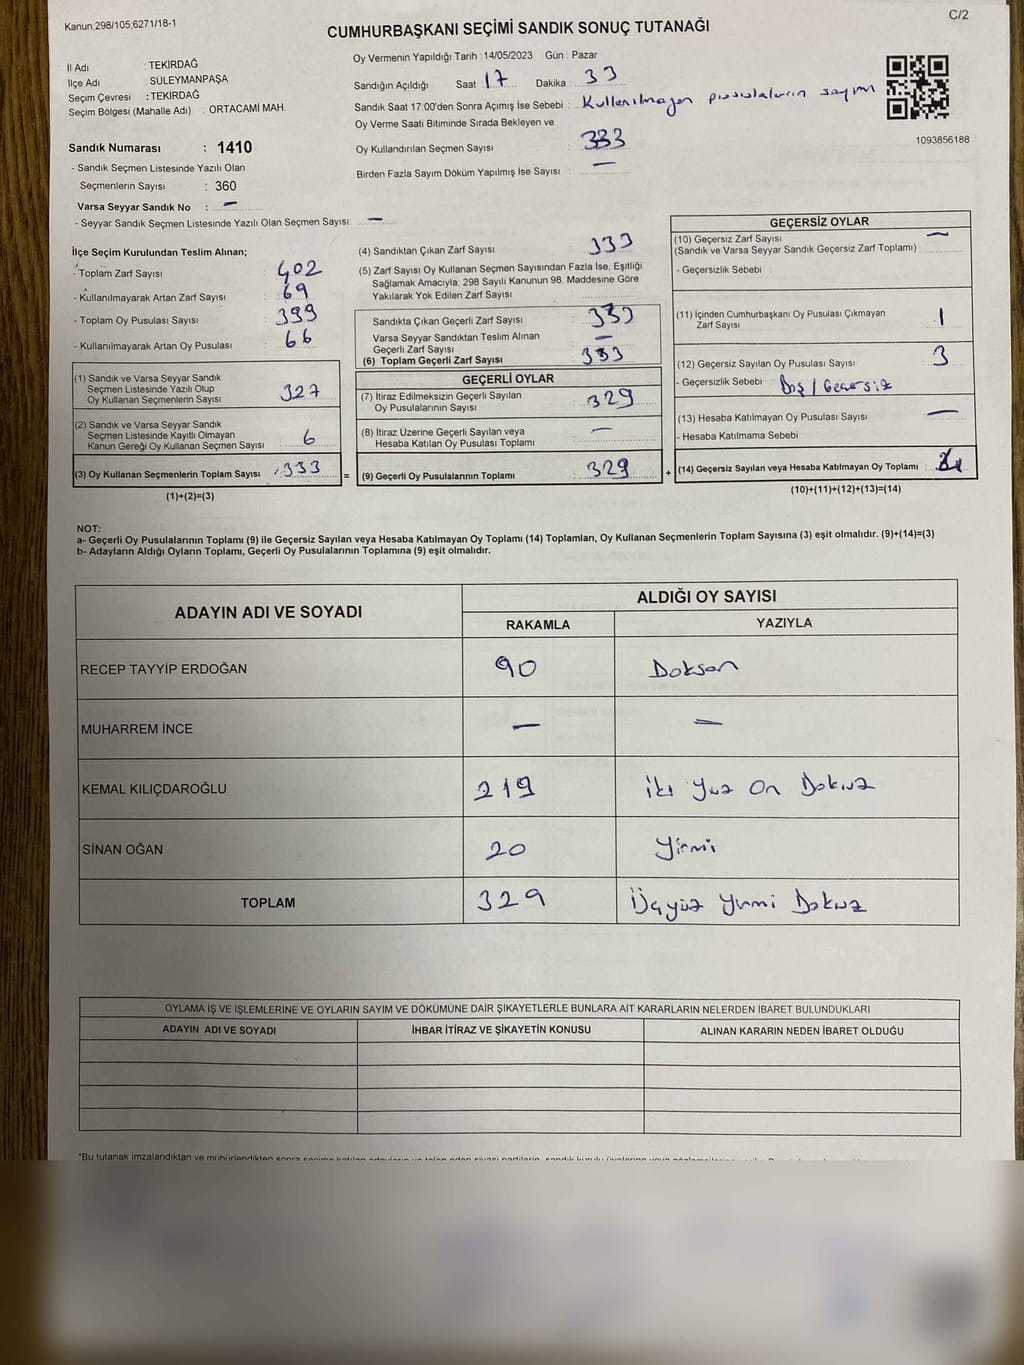 Kanun,298/105,6271/18-1
C/2
CUMHURBAŞKANI SEÇİMİ SANDIK SONUÇ TUTANAĞI
İl Adı : TEKİRDAĞ
İlçe Adı : SÜLEYMANPAŞA
Seçim Çevresi : TEKİRDAĞ
Seçim Bölgesi (Mahalle Adı) : ORTACAMİ MAH.
Oy Vermenin Yapıldığı Tarih : 14/05/2023 Gün : Pazar
Sandığın Açıldığı Saat 17 Dakika : 33
Sandık Saat 17:00'den Sonra Açımış İse Sebebi : Kullanılmayan pusulaların sayım
Oy Verme Saati Bitiminde Sırada Bekleyen ve
Oy Kullandırılan Seçmen Sayısı : 333
Birden Fazla Sayım Döküm Yapılmış İse Sayısı : —
1093856188
Sandık Numarası : 1410
- Sandık Seçmen Listesinde Yazılı Olan
Seçmenlerin Sayısı : 360
Varsa Seyyar Sandık No : —
- Seyyar Sandık Seçmen Listesinde Yazılı Olan Seçmen Sayısı: —
İlçe Seçim Kurulundan Teslim Alınan;
- Toplam Zarf Sayısı : 402
- Kullanılmayarak Artan Zarf Sayısı : 69
- Toplam Oy Pusulası Sayısı : 399
- Kullanılmayarak Artan Oy Pusulası : 66
(1) Sandık ve Varsa Seyyar Sandık
Seçmen Listesinde Yazılı Olup
Oy Kullanan Seçmenlerin Sayısı : 327
(2) Sandık ve Varsa Seyyar Sandık
Seçmen Listesinde Kayıtlı Olmayan
Kanun Gereği Oy Kullanan Seçmen Sayısı : 6
(3) Oy Kullanan Seçmenlerin Toplam Sayısı : 333
(1)+(2)=(3)
(4) Sandıktan Çıkan Zarf Sayısı : 333
(5) Zarf Sayısı Oy Kullanan Seçmen Sayısından Fazla İse, Eşitliği
Sağlamak Amacıyla; 298 Sayılı Kanunun 98. Maddesine Göre
Yakılarak Yok Edilen Zarf Sayısı :
Sandıkta Çıkan Geçerli Zarf Sayısı : 333
Varsa Seyyar Sandıktan Teslim Alınan
Geçerli Zarf Sayısı : —
(6) Toplam Geçerli Zarf Sayısı : 333
GEÇERLİ OYLAR
(7) İtiraz Edilmeksizin Geçerli Sayılan
Oy Pusulalarının Sayısı : 329
(8) İtiraz Üzerine Geçerli Sayılan veya
Hesaba Katılan Oy Pusulası Toplamı : —
= (9) Geçerli Oy Pusulalarının Toplamı : 329
GEÇERSİZ OYLAR
(10) Geçersiz Zarf Sayısı
(Sandık ve Varsa Seyyar Sandık Geçersiz Zarf Toplamı) : —
- Geçersizlik Sebebi :
(11) İçinden Cumhurbaşkanı Oy Pusulası Çıkmayan
Zarf Sayısı : 1
(12) Geçersiz Sayılan Oy Pusulası Sayısı : 3
- Geçersizlik Sebebi : Boş / Geçersiz
(13) Hesaba Katılmayan Oy Pusulası Sayısı : —
- Hesaba Katılmama Sebebi
+ (14) Geçersiz Sayılan veya Hesaba Katılmayan Oy Toplamı : 4
(10)+(11)+(12)+(13)=(14)
NOT:
a- Geçerli Oy Pusulalarının Toplamı (9) ile Geçersiz Sayılan veya Hesaba Katılmayan Oy Toplamı (14) Toplamları, Oy Kullanan Seçmenlerin Toplam Sayısına (3) eşit olmalıdır. (9)+(14)=(3)
b- Adayların Aldığı Oyların Toplamı, Geçerli Oy Pusulalarının Toplamına (9) eşit olmalıdır.
ADAYIN ADI VE SOYADI ALDIĞI OY SAYISI
RAKAMLA YAZIYLA
RECEP TAYYİP ERDOĞAN 90 Doksan
MUHARREM İNCE — —
KEMAL KILIÇDAROĞLU 219 İki Yuz On Dokuz
SİNAN OĞAN 20 Yirmi
TOPLAM 329 Üçyüz Yirmi Dokuz
OYLAMA İŞ VE İŞLEMLERİNE VE OYLARIN SAYIM VE DÖKÜMÜNE DAİR ŞİKAYETLERLE BUNLARA AİT KARARLARIN NELERDEN İBARET BULUNDUKLARI
ADAYIN ADI VE SOYADI İHBAR İTİRAZ VE ŞİKAYETİN KONUSU ALINAN KARARIN NEDEN İBARET OLDUĞU
*Bu tutanak imzalandıktan ve mühürlendikten sonra